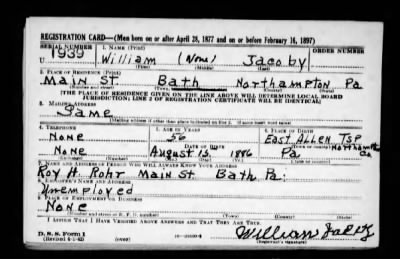 REGISTRATION CARD—(Men born on or after April 28, 1877 and on or before February 16, 1897)
SERIAL NUMBER 1. NAME (Print) ORDER NUMBER
U 1939 William (None) Jacoby
(First) (Middle) (Last)
2. PLACE OF RESIDENCE (Print)
Main St. Bath Northampton Pa
[THE PLACE OF RESIDENCE GIVEN ON THE LINE ABOVE WILL DETERMINE LOCAL BOARD
JURISDICTION; LINE 2 OF REGISTRATION CERTIFICATE WILL BE IDENTICAL]
3. MAILING ADDRESS
Same
[Mailing address if other than place indicated on line 2. If same insert word same]
4. TELEPHONE 5. AGE IN YEARS 6. PLACE OF BIRTH
None East Allen Tsp
DATE OF BIRTH Northampton Co
None August 1886 Pa
7. NAME AND ADDRESS OF PERSON WHO WILL ALWAYS KNOW YOUR ADDRESS
Roy H. Rohr Main St Bath Pa.
8. EMPLOYER'S NAME AND ADDRESS
Unemployed
9. PLACE OF EMPLOYMENT OR BUSINESS
None
I AFFIRM THAT I HAVE VERIFIED ABOVE ANSWERS AND THAT THEY ARE TRUE.
D. S. S. Form 1 William
(Revised 4-1-42) (over) (Registrant's signature)